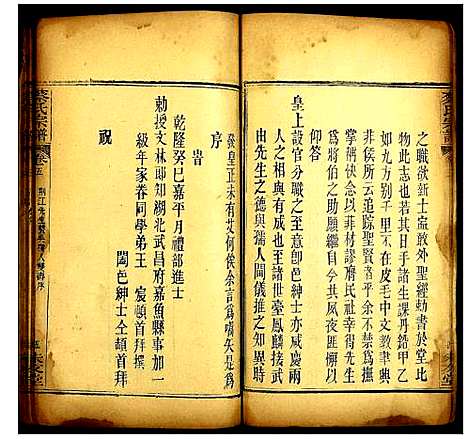 之職欲新士盍敢外聖經勤書於堂比
物此志也若其日手諸生課丹鉛甲乙
左右别弓里不在皮毛中文教聿興
非侯所云追踪聖賢者乎余不禁爲撫
掌稱快念以菲材謬膺民社幸得先生
爲將伯之助願繼自今共夙夜匪懈以
仰答
皇上設官分職之至意卽邑紳士亦咸慶
人之相與有成也至諸世臺鳳麟接武
皆先生之德與孺人閫儀推之又兩異時
發皇正未有艾何俟余言爲頌矣是爲
序
旹
乾隆癸巳嘉平月禮部進士
勅授文林郎知湖北武昌府嘉魚縣事加一
級年家眷同學弟王宸頓首拜撰
闔邑紳士仝頓首拜
祝
宗譜
卷五